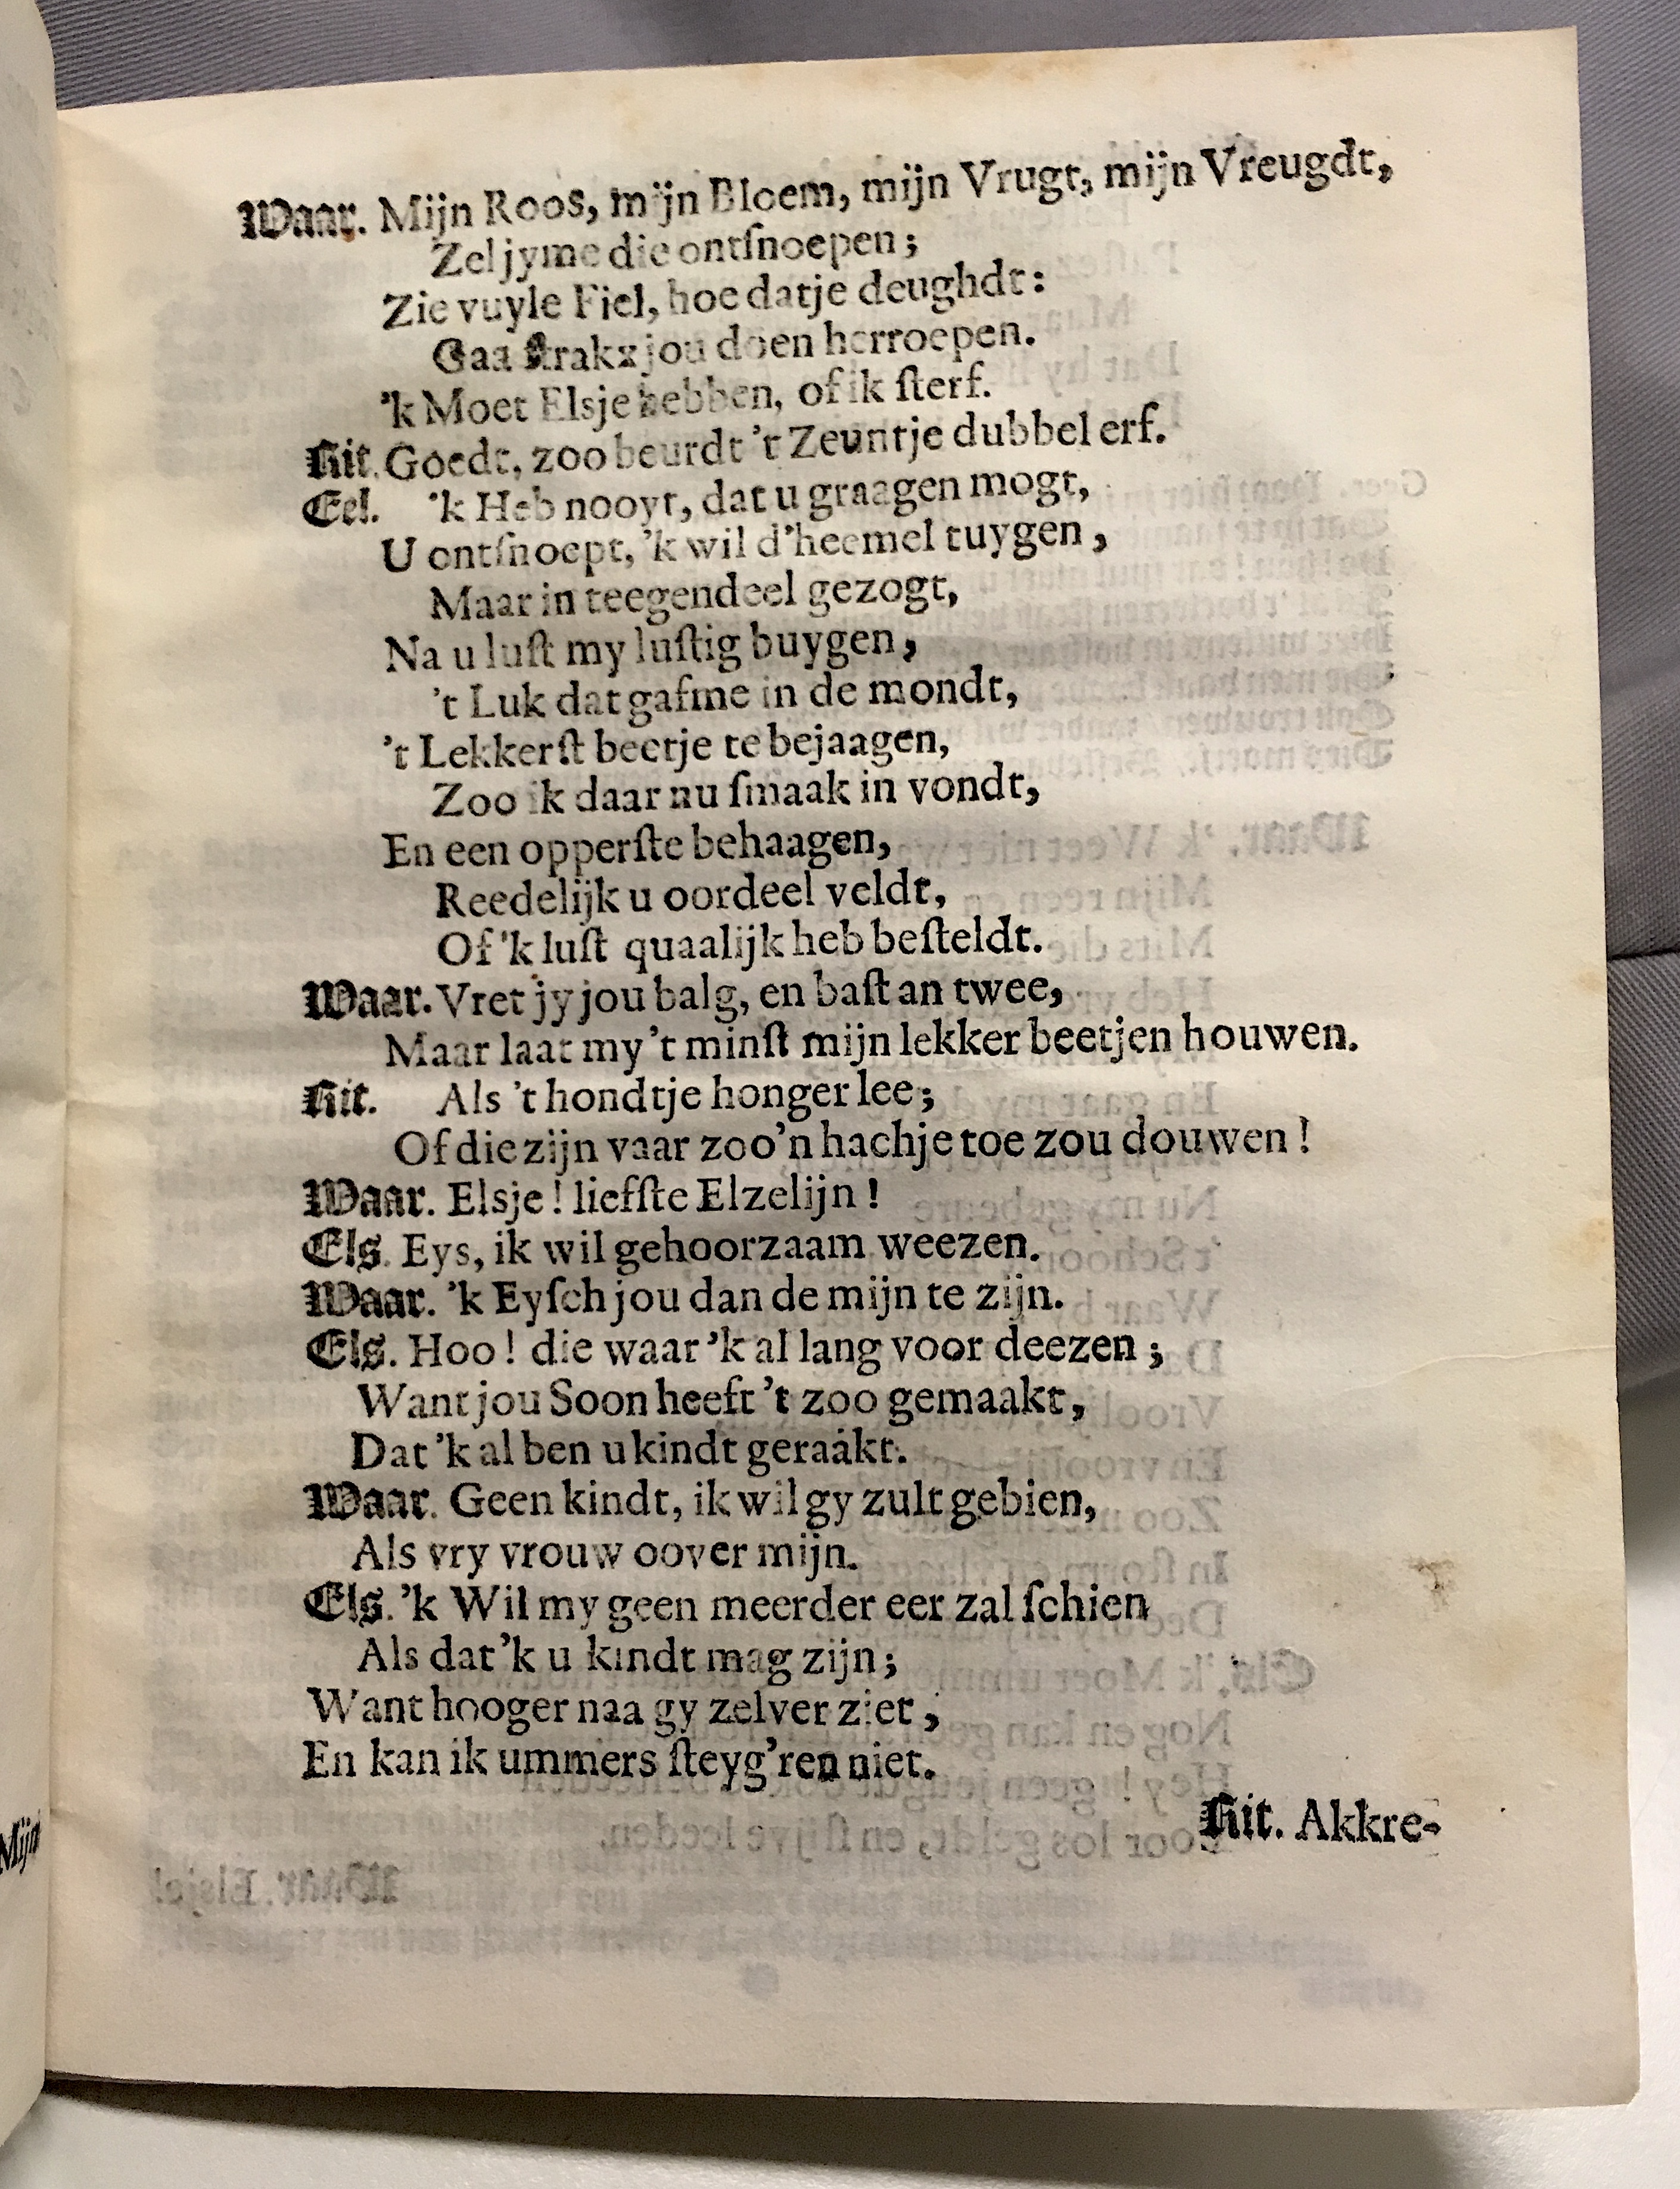 Waar. Mijn Roos, mijn Bloem, mijn Vrugt, mijn Vreugdt,
Zel jyme die ontſnoepen;
Zie vuyle Fiel, hoe datje deughdt:
Gaa ſtrakx jou doen herroepen.
'k Moet Elsje hebben, of ik ſterf.
Kit. Goedt, zoo beurdt 't Zeuntje dubbel erf.
Eel. 'k Heb nooyt, dat u graagen mogt,
U ontſnoept, 'k wil d'heemel tuygen,
Maar in teegendeel gezogt,
Na u luſt my luſtig buygen,
't Luk dat gafme in de mondt,
't Lekkerſt beetje te bejaagen,
Zoo ik daar nu ſmaak in vondt,
En een opperſte behaagen,
Reedelijk u oordeel veldt,
Of 'k luſt quaalijk heb beſteldt.
Waar. Vret jy jou balg, en baſt an twee,
Maar laat my 't minſt mijn lekker beetjen houwen.
Kit. Als 't hondtje honger lee;
Of die zijn vaar zoo'n hachje toe zou douwen!
Waar. Elsje! liefſte Elzelijn!
Els. Eys, ik wil gehoorzaam weezen.
Waar. 'k Eyſch jou dan de mijn te zijn.
Els. Hoo! die waar 'k al lang voor deezen;
Want jou Soon heeft 't zoo gemaakt,
Dat 'k al ben u kindt geraakt.
Waar. Geen kindt, ik wil gy zult gebien,
Als vry vrouw oover mijn.
Els. 'k Wil my geen meerder eer zal ſchien
Als dat 'k u kindt mag zijn;
Want hooger naa gy zelver ziet,
En kan ik ummers ſteyg'ren niet.
Kit. Akkre-
Mijn